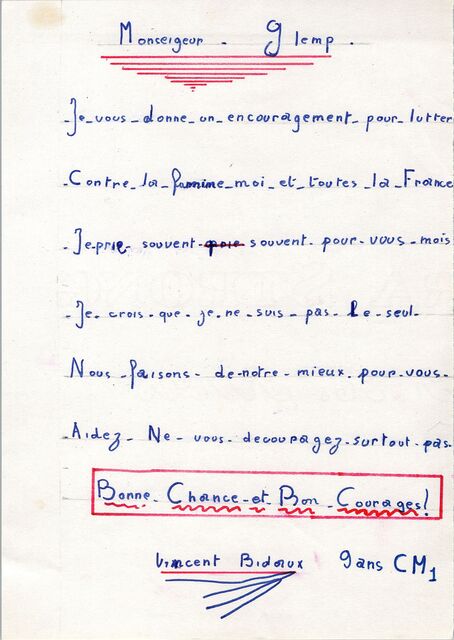 Monseigeur. Glemp.
Je vous donne un encouragement pour lutter
Contre la famine moi et toutes la France
Je prie souvent souvent pour vous mois
Je crois que je ne suis pas Le seul
Nous faisons de notre mieux pour vous
Aidez Ne vous decouragez surtout pas.
Bonne Chance et Bon Courages!
Vincent Bidoux 9 ans CM1